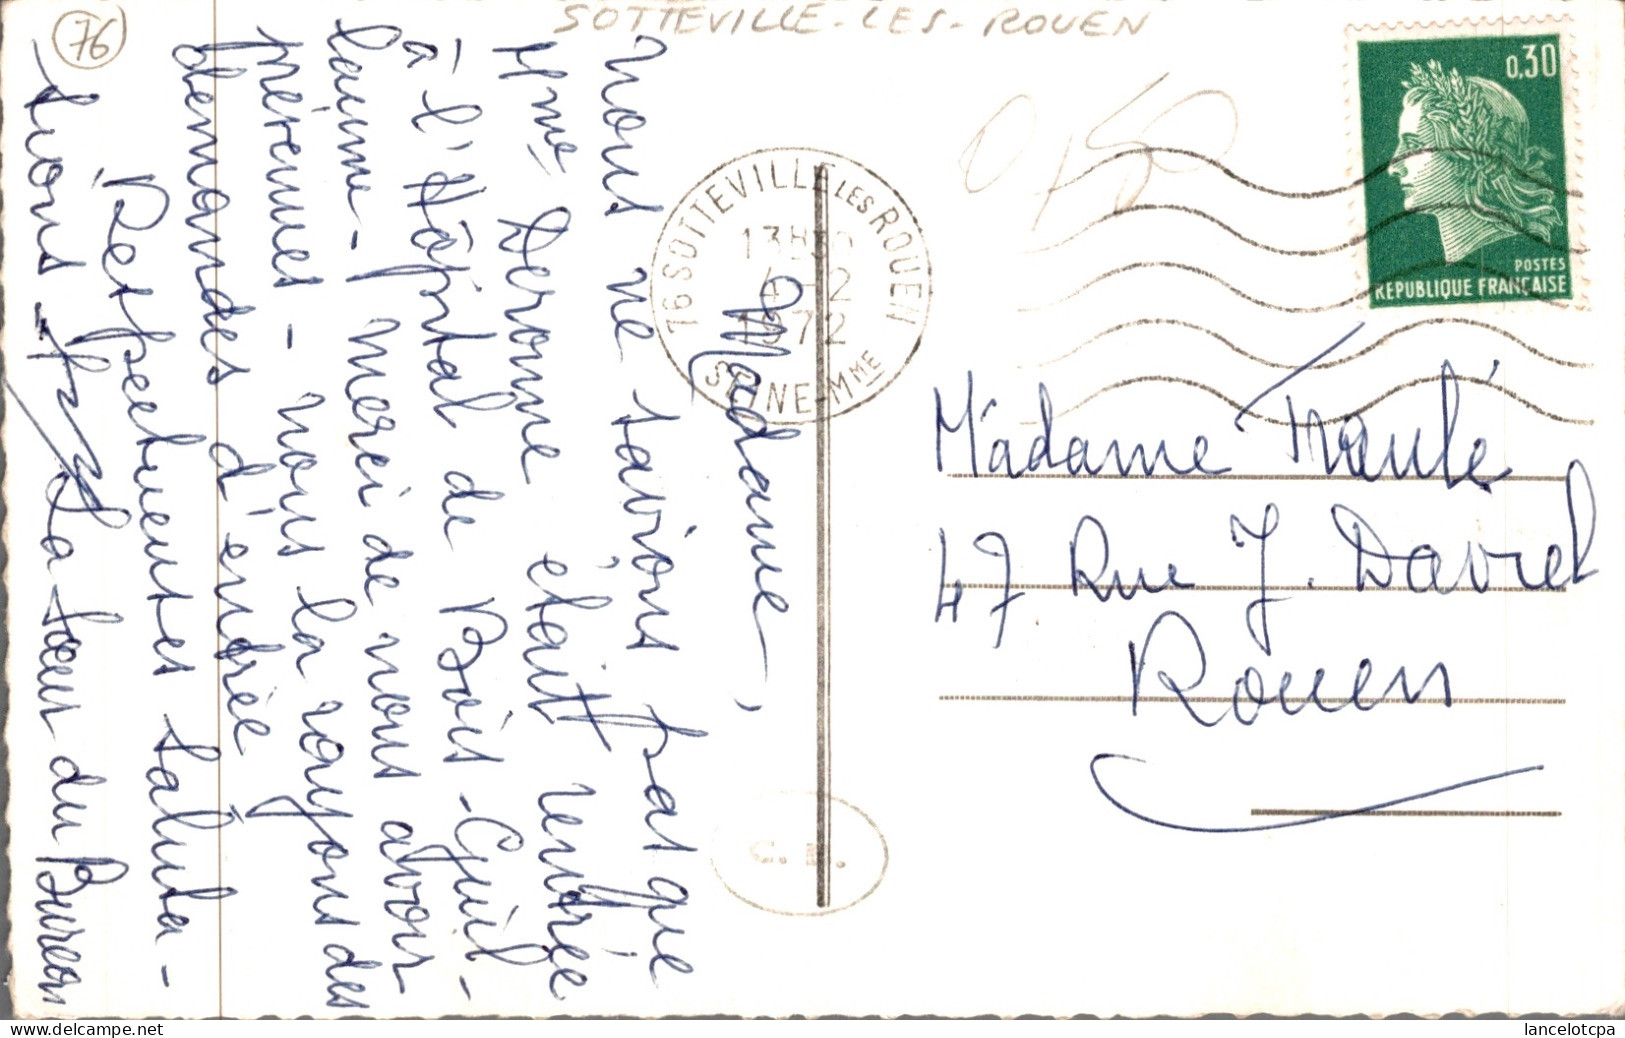 76
SOTTEVILLE-LES-ROUEN
0,30
POSTES
REPUBLIQUE FRANÇAISE
76 SOTTEVILLE LES ROUEN
13H30
4-12
1972
SEINE-MME
Madame,
Nous ne savions pas que
Mme Deronne était rentrée
à l'Hôpital de Bois-Guil-
laume - Merci de nous avoir
prévenues - nous la rayons des
demandes d'entrée
Respectueuses saluta-
tions - La Sœur du Bureau
Madame Traulé
47 Rue J. Davrel
Rouen
lancelotcpa